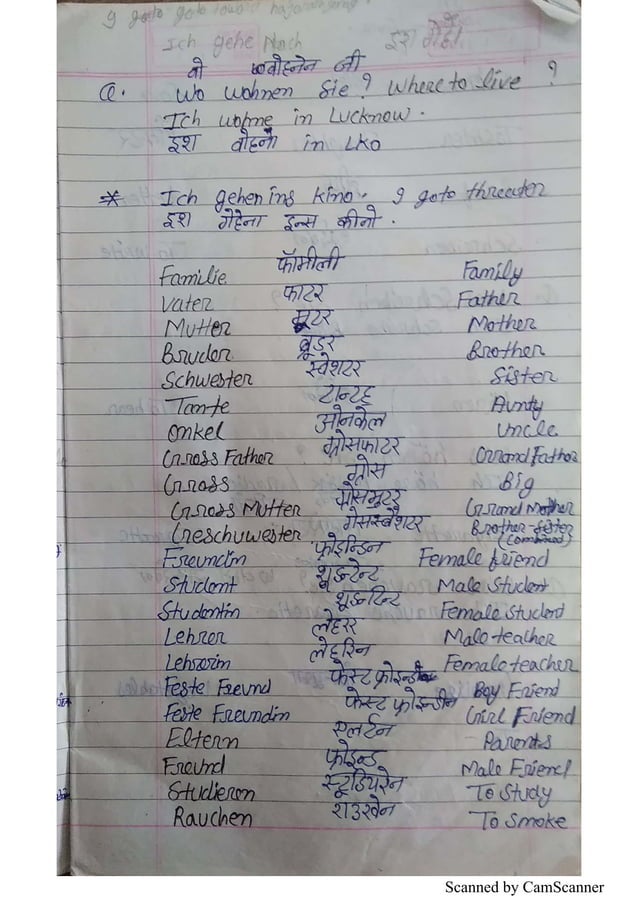 Ich gehe Nach
वो वोहनेन जी
Q. Wo wohnen Sie? Where to live?
Ich wohne in Lucknow.
इश वोहने in LKO
* Ich gehen ins kino. I goto threater
इश गेहेना इन्स कीनो.
Familie फॅामीली Family
Vater फाटर Father
Mutter मूटर Mother
Bruder ब्रूडर Brother
Schwester स्वेशटर Sister
Tante टान्टह Aunty
Onkel ओनकेल Uncle
Gross Father ग्रोसफाटर Grand Father
Gross ग्रोस Big
Gross Mutter ग्रोसमूटर Grand Mother
Geschuwester गेसस्वेशटर Brother-Sister (Combined)
Freundin फ्रोइन्डिन Female friend
Student Male Student
Studentin Female Student
Lehrer लेहरर Male teacher
Lehrerin लेहरिन Female teacher
Feste Freund फेस्ट फ्रोइन्ड Boy Friend
Feste Freundin फेस्ट फ्रोइन्डीन Girl Friend
Eltern एलर्टन Parents
Freund फ्रोइन्ड Male Friend
Studieren स्टूडियरेन To Study
Rauchen राउखेन To Smoke
Scanned by CamScanner